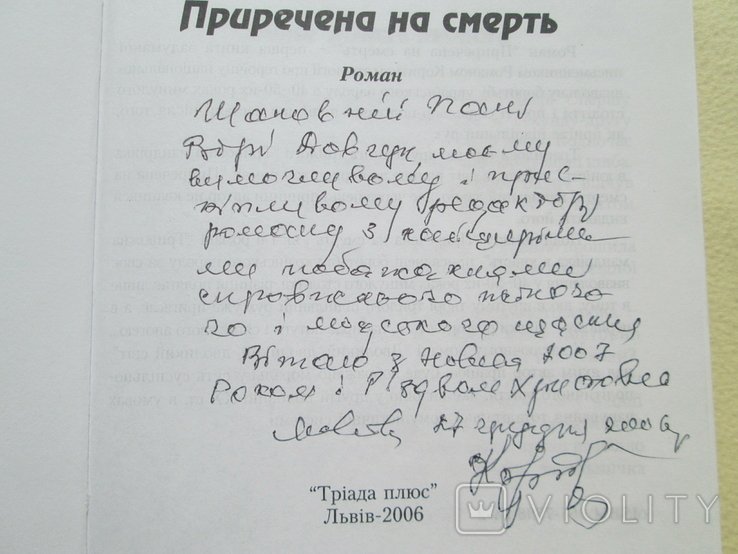 Приречена на смерть
Роман
Шановній Пані
Вірі Довгун, моєму
вимогливому і прис-
кіпливому редактору
роману з найщирiши-
ми побажаннями
справжнього
го і людського щастя
Вітаю з Новим 2007
Роком і Різдвом Христовим
Львів, 27 грудня 2006 р
"Тріада плюс"
Львів-2006
VIOLITY